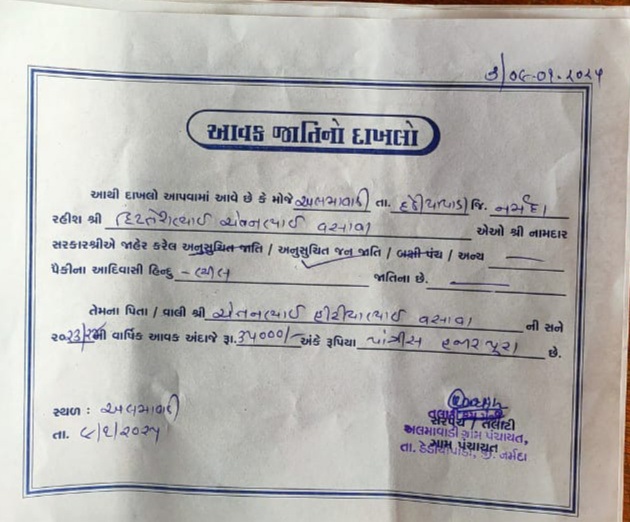 તા/૦૯-૦૧-૨૦૨૫
આવક જાતિનો દાખલો
આથી દાખલો આપવામાં આવે છે કે મોજે અલમાવાડી તા. દેડીયાપાડા જિ. નર્મદા
રહીશ શ્રી હિતેશભાઈ ચેતનભાઈ વસાવા એઓ શ્રી નામદાર
સરકારશ્રીએ જાહેર કરેલ અનુસુચિત જાતિ / અનુસુચિત જન જાતિ / બક્ષી પંચ / અન્ય
પૈકીના આદિવાસી હિન્દુ - ભીલ જાતિના છે.
તેમના પિતા / વાલી શ્રી ચેતનભાઈ હીરીયાભાઈ વસાવા ની સને
૨૦૨૩/૨૪ની વાર્ષિક આવક અંદાજે રૂા. ૩૫૦૦૦/- અંકે રૂપિયા પાંત્રીસ હજાર પૂરા છે.
સ્થળ : અલમાવાડી
તા. ૯/૧/૨૦૨૫
સરપંચ / તલાટી
અલમાવાડી ગ્રામ પંચાયત,
ગ્રામ પંચાયત
તા. ડેડીયાપાડા, જી. નર્મદા